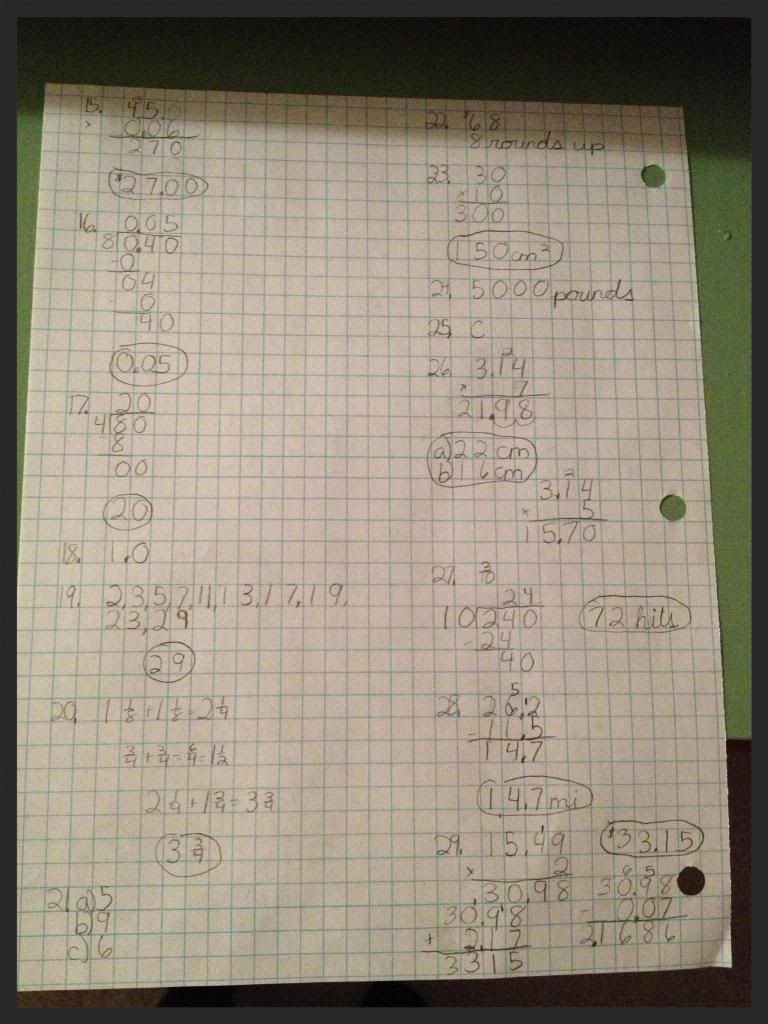 15. 450
× 0.06
270
$27.00
16. 0.05
8 0.40
-0
04
- 0
40
0.05
17. 20
4 80
8
00
20
18. 1.0
19. 2,3,5,7,11,13,17,19,
23,29
29
20. 1 1/8 + 1 1/8 = 2 1/4
3/4 + 3/4 = 6/4 = 1 1/2
2 1/4 + 1 2/4 = 3 3/4
3 3/4
21 a) 5
b) 9
c) 6
22. $68
8 rounds up
23. 30
×10
300
150cm²
24. 5000 pounds
25. C
26. 3.14
× 7
21.98
a) 22cm
b) 16cm
3.14
× 5
15.70
27.
24
10 240
-24
40
72 hits
28. 26.2
11.5
14.7
14.7mi
29. 15.49
× 2
30.98
30.98
+ 2.17
3315
$33.15
30.98
0.07
2.1686